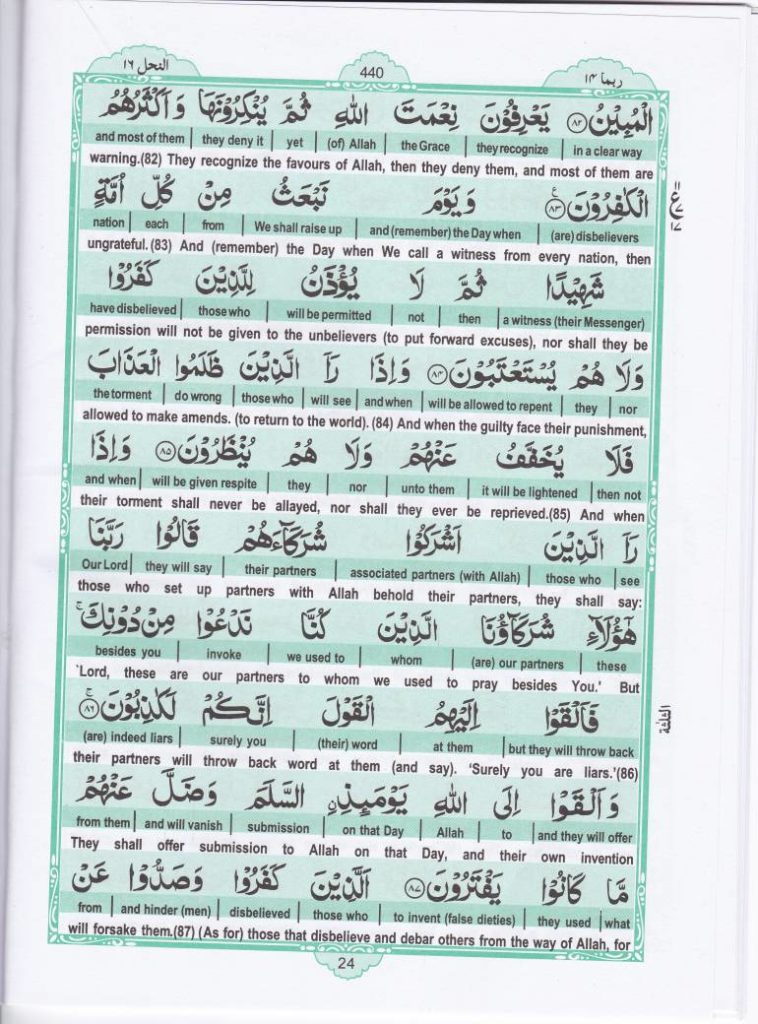 ربما ١٤
440
النحل ١٦
الْمُبِيْنُ ﴿٨٢﴾ يَعْرِفُوْنَ نِعْمَتَ اللّٰهِ ثُمَّ يُنْكِرُوْنَهَا وَ اَكْثَرُهُمُ
and most of them | they deny it | yet | (of) Allah | the Grace | they recognize | in a clear way
warning.(82) They recognize the favours of Allah, then they deny them, and most of them are
الْكٰفِرُوْنَ ﴿٨٣﴾ ع وَ يَوْمَ نَبْعَثُ مِنْ كُلِّ اُمَّةٍ
nation | each | from | We shall raise up | and (remember) the Day when | (are) disbelievers
ungrateful.(83) And (remember) the Day when We call a witness from every nation, then
شَهِيْدًا ثُمَّ لَا يُؤْذَنُ لِلَّذِيْنَ كَفَرُوْا
have disbelieved | those who | will be permitted | not | then | a witness (their Messenger)
permission will not be given to the unbelievers (to put forward excuses), nor shall they be
وَلَا هُمْ يُسْتَعْتَبُوْنَ ﴿٨٤﴾ وَاِذَا رَاَ الَّذِيْنَ ظَلَمُوا الْعَذَابَ
the torment | do wrong | those who | will see | and when | will be allowed to repent | they | nor
allowed to make amends. (to return to the world). (84) And when the guilty face their punishment,
فَلَا يُخَفَّفُ عَنْهُمْ وَلَا هُمْ يُنْظَرُوْنَ ﴿٨٥﴾ وَاِذَا
and when | will be given respite | they | nor | unto them | it will be lightened | then not
their torment shall never be allayed, nor shall they ever be reprieved.(85) And when
رَاَ الَّذِيْنَ اَشْرَكُوْا شُرَكَآءَهُمْ قَالُوْا رَبَّنَا
Our Lord | they will say | their partners | associated partners (with Allah) | those who | see
those who set up partners with Allah behold their partners, they shall say:
هٰٓؤُلَآءِ شُرَكَآؤُنَا الَّذِيْنَ كُنَّا نَدْعُوْا مِنْ دُوْنِكَ ۚ
besides you | invoke | we used to | whom | (are) our partners | these
`Lord, these are our partners to whom we used to pray besides You.' But
فَاَلْقَوْا اِلَيْهِمُ الْقَوْلَ اِنَّكُمْ لَكٰذِبُوْنَ ﴿٨٦﴾ ۚ
(are) indeed liars | surely you | (their) word | at them | but they will throw back
their partners will throw back word at them (and say). ‘Surely you are liars.’(86)
وَ اَلْقَوْا اِلَى اللّٰهِ يَوْمَئِذِ ۨالسَّلَمَ وَضَلَّ عَنْهُمْ
from them | and will vanish | submission | on that Day | Allah | to | and they will offer
They shall offer submission to Allah on that Day, and their own invention
مَّا كَانُوْا يَفْتَرُوْنَ ﴿٨٧﴾ اَلَّذِيْنَ كَفَرُوْا وَصَدُّوْا عَنْ
from | and hinder (men) | disbelieved | those who | to invent (false dieties) | they used | what
will forsake them.(87) (As for) those that disbelieve and debar others from the way of Allah, for
24
ع
الثلثة